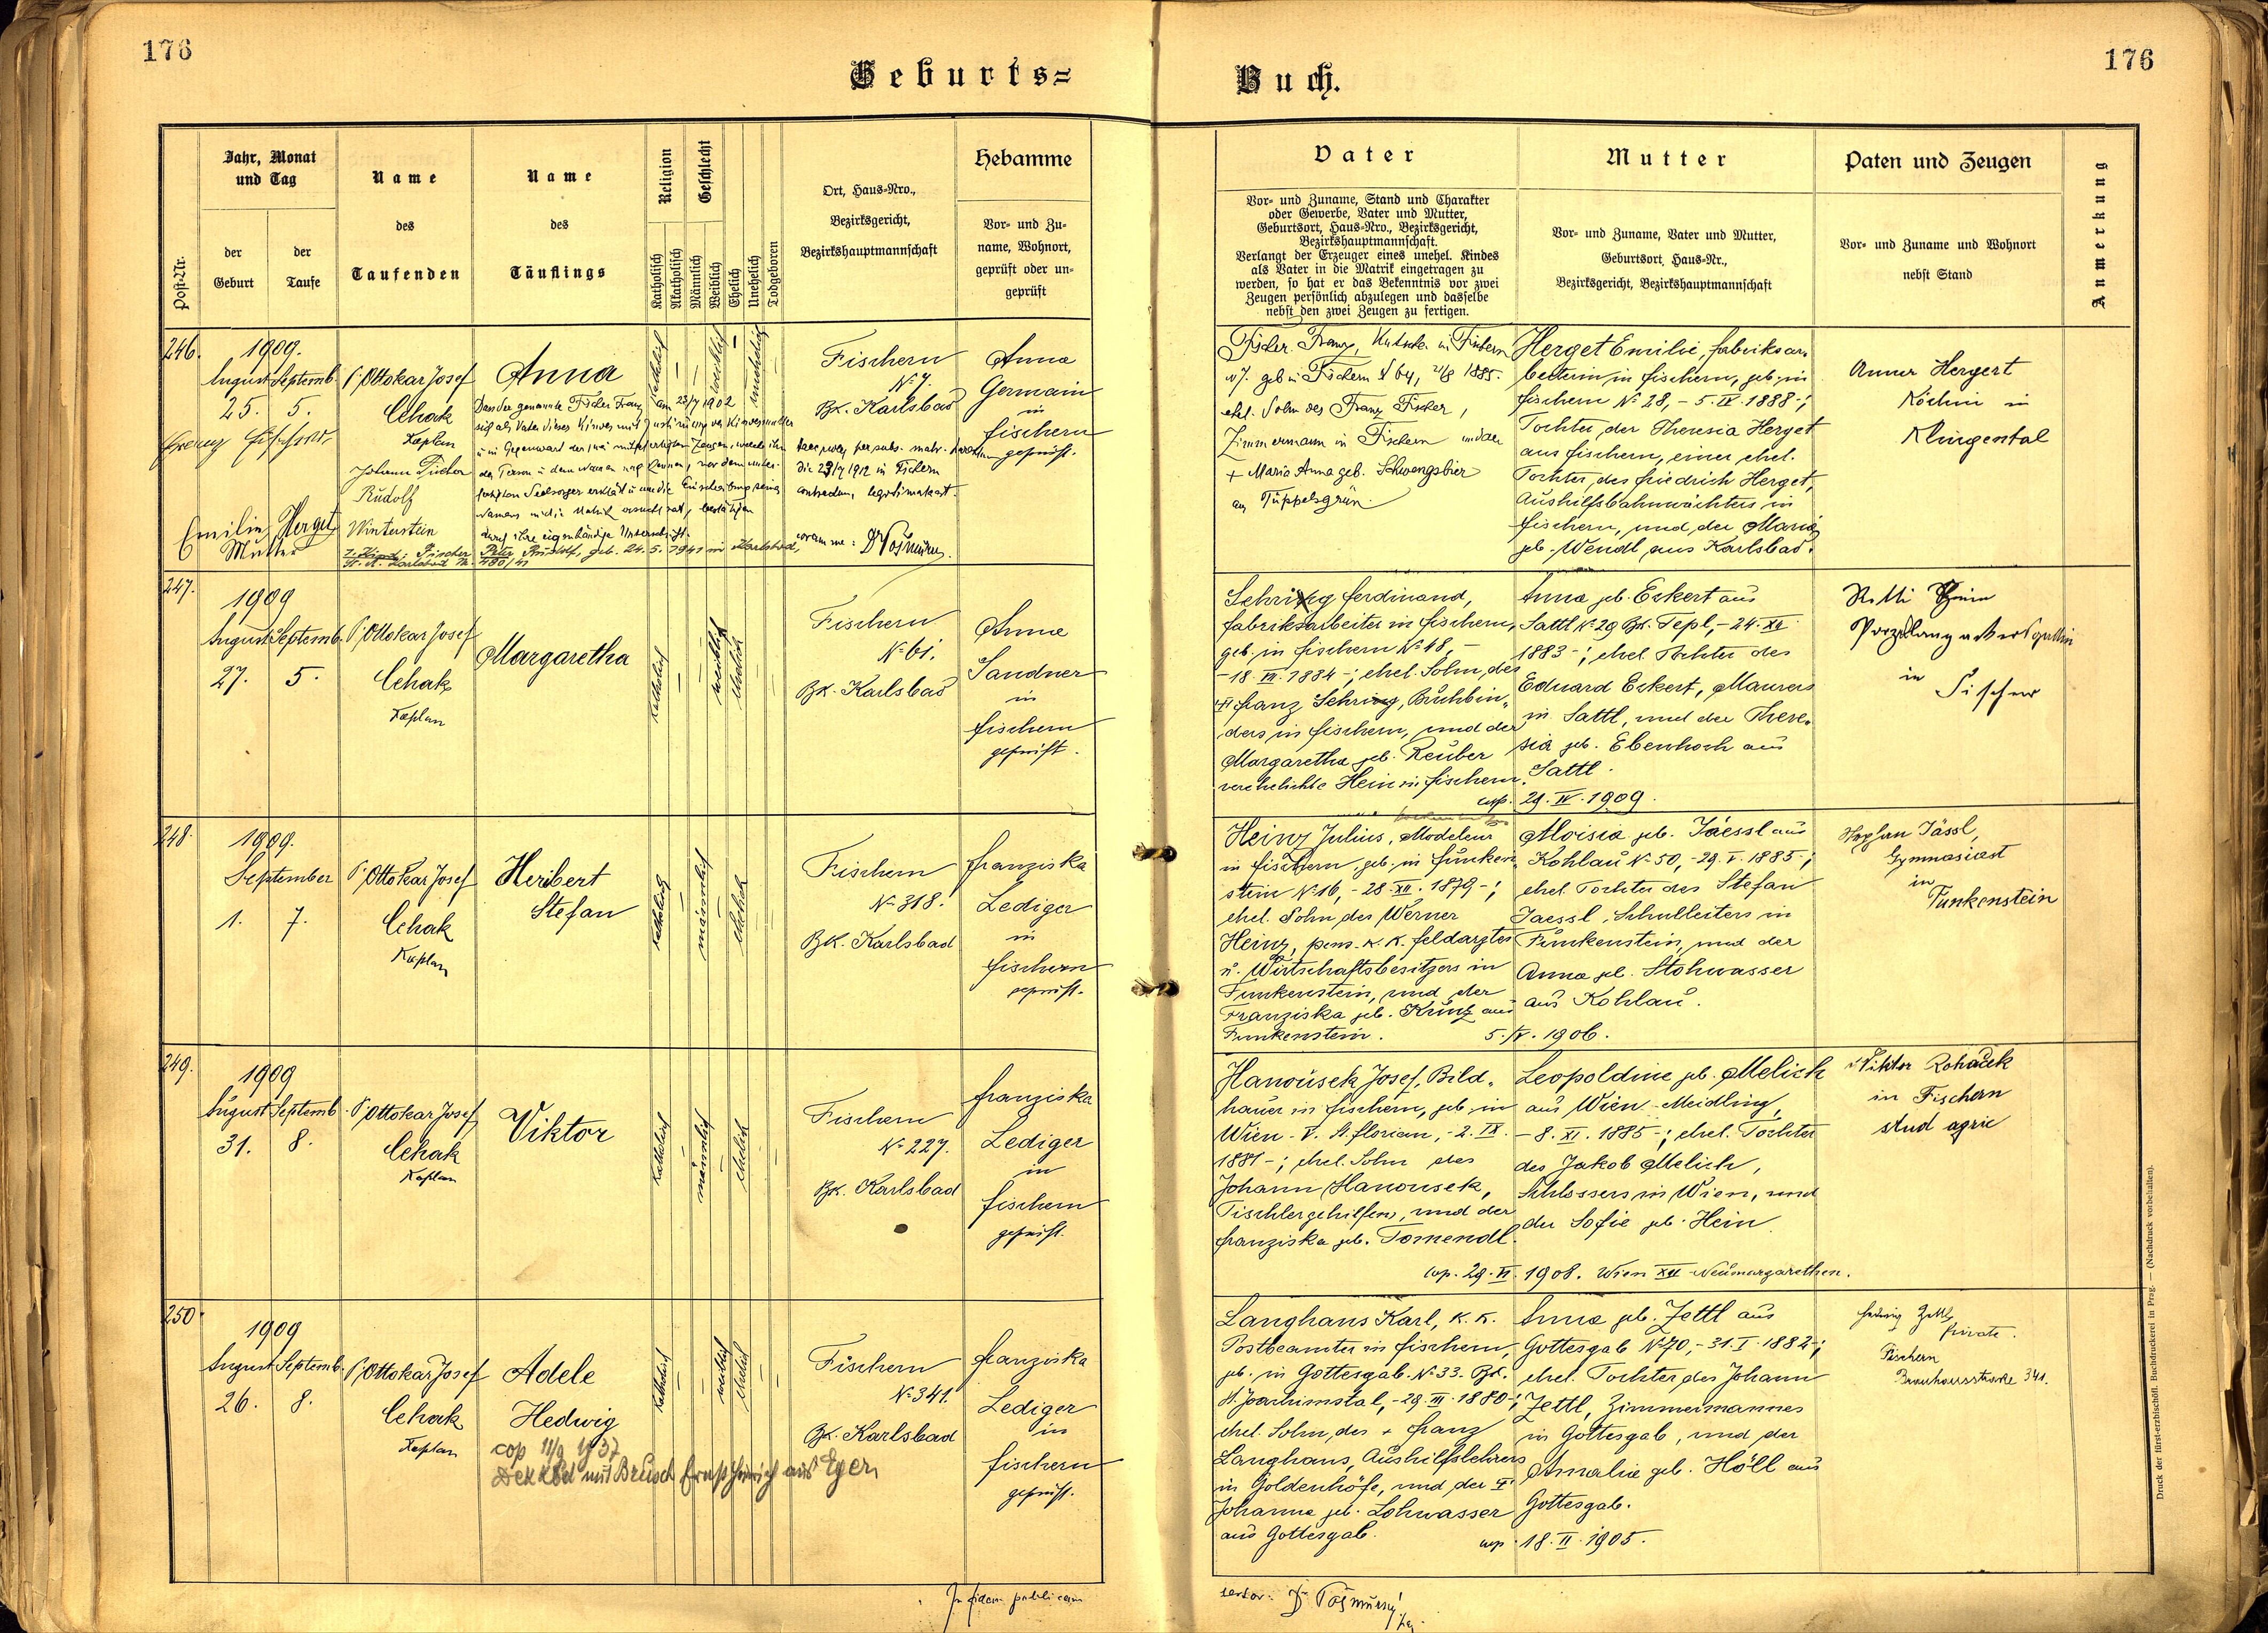 176
176
Geburts=
Buch.
Post-Nr.
Jahr, Monat
und Tag
der
Geburt
der
Taufe
Name
des
Taufenden
Name
des
Täuflings
Religion
Katholisch
Akatholisch
Geschlecht
Männlich
Weiblich
Ehelich
Unehelich
Todgeboren
Ort, Haus-Nro.,
Bezirksgericht,
Bezirkshauptmannschaft
Hebamme
Vor- und Zu-
name, Wohnort,
geprüft oder un-
geprüft
Vater
Vor- und Zuname, Stand und Charakter
oder Gewerbe, Vater und Mutter,
Geburtsort, Haus-Nro., Bezirksgericht,
Bezirkshauptmannschaft.
Verlangt der Erzeuger eines unehel. Kindes
als Vater in die Matrik eingetragen zu
werden, so hat er das Bekenntnis vor zwei
Zeugen persönlich abzulegen und dasselbe
nebst den zwei Zeugen zu fertigen.
Mutter
Vor- und Zuname, Vater und Mutter,
Geburtsort, Haus-Nr.,
Bezirksgericht, Bezirkshauptmannschaft
Paten und Zeugen
Vor- und Zuname und Wohnort
nebst Stand
Anmerkung
246.
1909.
August Septemb.
25. 5.
P. Ottokar Josef
Cehak
Kaplan
Johann Fischer
Rudolf
Winterstein
Emilie Herget
Mutter
Anna
Dass der genannte Fischer Franz am 23/7 1902
sich als Vater dieses Kindes mit Zustimmung der Kindesmutter
u. in Gegenwart der zwei mitgefertigten Zeugen, welche ihn
der Person u. dem Namen nach kennen, vor dem unter-
fertigten Seelsorger erklärt u. um die Einschreibung seines
Namens in die Matrik ersucht hat, bestätigen
durch ihre eigenhändige Unterschrift.
Fischer Peter Rudolf, geb. 24.5.1941 in Karlsbad,
St. A. Karlsbad Nr. 480/41
katholisch
weiblich
unehelich
Fischern
No 7.
Bk. Karlsbad
per subs. matr.
die 23/7 1912 in Fischern
contractum, legitimata est.
coram me:
Anna
Germain
in
Fischern
geprüft.
Fischer Franz, Kutscher in Fischern
No 7. geb. in Fischern No 64, 21/8 1885.
ehel. Sohn des Franz Fischer,
Zimmermann in Fischern und der
+ Maria Anna geb. Schwengsbier
aus Tüppelsgrün.
Herget Emilie, Fabriksar-
beiterin in Fischern, geb. in
Fischern No 28, - 5. IV. 1888-;
Tochter der Theresia Herget
aus Fischern, einer ehel.
Tochter des Friedrich Herget,
Aushilfsbahnwächters in
Fischern, und der Maria
geb. Wendl aus Karlsbad.
Anna Hergert
Köchin in
Klingental
247.
1909
August Septemb.
27. 5.
P. Ottokar Josef
Cehak
Kaplan
Margaretha
katholisch
weiblich
ehelich
Fischern
No 61.
Bk. Karlsbad
Anna
Sandner
in
Fischern
geprüft.
Ferdinand,
Fabriksarbeiter in Fischern,
geb. in Fischern No 48, -
-18. VI. 1884-; ehel. Sohn des
Franz Buchbin-
ders in Fischern, und der
Margaretha geb. Reuber
verehelichte Hein in Fischern.
Anna geb. Eckert aus
Sattl No 29 Bk. Tepl, - 24. XII.
1883-; ehel. Tochter des
Eduard Eckert, Maurers
in Sattl, und der There-
sia geb. Ebenhoch aus
Sattl.
cop. 29. IV. 1909.
in
Fischern
248.
1909.
September
1. 7.
P. Ottokar Josef
Cehak
Kaplan
Heribert
Stefan
katholisch
männlich
ehelich
Fischern
No 318.
Bk. Karlsbad
Franziska
Lediger
in
Fischern
geprüft.
Heinz Julius, Modeleur
in Fischern, geb. in Funken-
stein No 16, - 28. XII. 1879-;
ehel. Sohn des Werner
Heinz, pens. k. k. Feldarztes
u. Wirtschaftsbesitzers in
Funkenstein, und der
Franziska geb. Kunz aus
Funkenstein.
Aloisia geb. Jaessl aus
Kohlau No 50, - 29. V. 1885-;
ehel. Tochter des Stefan
Jaessl, Schulleiters in
Funkenstein, und der
Anna geb. Stohwasser
aus Kohlau.
5. IV. 1906.
Stephan Jässl,
Gymnasiast
in
Funkenstein
249.
1909
August Septemb.
31. 8.
P. Ottokar Josef
Cehak
Kaplan
Viktor
katholisch
männlich
ehelich
Fischern
No 227.
Bk. Karlsbad
Franziska
Lediger
in
Fischern
geprüft.
Hanousek Josef, Bild-
hauer in Fischern, geb. in
Wien - V. St. Florian, - 2. IX.
1881-; ehel. Sohn des
Johann Hanousek,
Tischlergehilfen, und der
Franziska geb. Tomendl.
Leopoldine geb. Melich
aus Wien - Meidling,
- 8. XI. 1885-; ehel. Tochter
des Jakob Melich,
Schlossers in Wien, und
der Sofie geb. Hein
cop. 29. VI. 1908. Wien XII Neumargarethen.
Viktor Rohaček
in Fischern
stud agric
250.
1909
August Septemb.
26. 8.
P. Ottokar Josef
Cehak
Kaplan
Adele
Hedwig
cop 11/9 1937
Dek Kbd mit Brusch Ernst Heinrich aus Eger
katholisch
weiblich
ehelich
Fischern
No 341.
Bk. Karlsbad
Franziska
Lediger
in
Fischern
geprüft.
Langhans Karl, k. k.
Postbeamter in Fischern,
geb. in Gottesgab No 33. Bk.
St. Joachimstal, - 29. III. 1880-;
ehel. Sohn des + Franz
Langhans, Aushilfslehrers
in Goldenhöfe, und der
Johanna geb. Lohwasser
aus Gottesgab.
Anna geb. Zettl aus
Gottesgab No 70, - 31. I. 1882-;
ehel. Tochter des Johann
Zettl, Zimmermannes
in Gottesgab, und der
Amalie geb. Höll aus
Gottesgab.
cop. 18. II. 1905.
Hedwig Zettl,
Private.
Fischern
Brauhausstraße 341.
In fidem publicam
Druck der fürst-erzbischöfl. Buchdruckerei in Prag. — (Nachdruck vorbehalten).